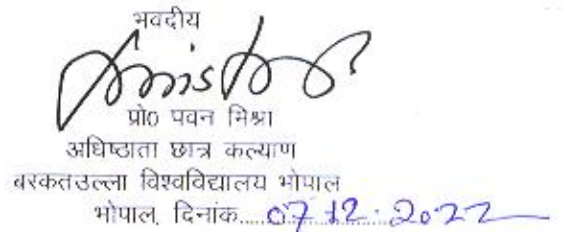 भवदीय
प्रो0 पवन मिश्रा
अधिष्ठाता छात्र कल्याण
बरकतउल्ला विश्वविद्यालय भोपाल
भोपाल, दिनांक..........07 12.2022